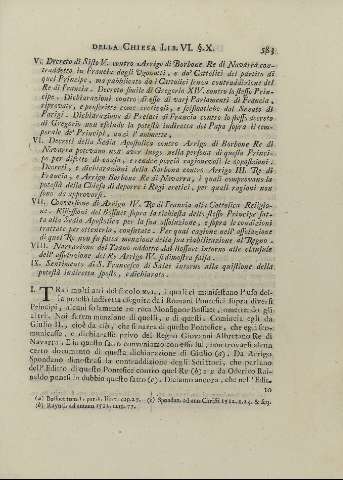 DELLA CHIESA LIB. VI. §. X. 583
V. Decreto di Sisto V. contro Arrigo di Borbone Re di Navarra con-
traddetto in Francia dagli Ugonotti, e da' Cattolici del partito di
quel Principe, ma pubblicato da' Cattolici senza contraddizione del
Re di Francia. Decreto simile di Gregorio XIV. contro lo stesso Prin-
cipe. Dichiarazioni contro di esse di varj Parlamenti di Francia,
riprovate, e come scismatiche, dal Senato di
Parigi. Dichiarazione di Prelati di Francia contro lo stesso decreto
di Gregorio non esclude la potestà indiretta del Papa sopra il tem-
porale de' Principi, anzi l'ammette.
VI. Decreti della Sedia Apostolica contro Arrigo di Borbone Re di
Navarra potevano non aver luogo nella persona di questo Princi-
pe per difetto di causa, e rendere perciò ragionevoli le opposizioni.
Decreti, e dichiarazioni della Sorbona contro Arrigo III. Re di
Francia, e Arrigo Borbone Re di Navarra, i quali suppongono la
potestà della Chiesa di deporre i Regi eretici, per quali ragioni non
sono da approvarsi.
VII. Conversione di Arrigo IV. Re di Francia alla Cattolica Religio-
ne. Riflessioni del Bossuet sopra la richiesta dello stesso Principe fat-
ta alla Sedia Apostolica per la sua assoluzione, e sopra le condizioni
trattate per ottenerla, confutate. Per qual cagione nell'assoluzione
di quel Re non fu fatta menzione della sua riabilitazione al Regno.
VIII. Narrazione del Tuano addotta dal Bossuet intorno alle clausole
dell'assoluzione del Re Arrigo IV. si dimostra falsa.
IX. Sentimento di S. Francesco di Sales intorno alla quistione della
potestà indiretta sposto, e dichiarato.
I. TRa i molti atti del secolo XVI., i quali ci manifestano l'uso del-
la potestà indiretta eseguita dai Romani Pontefici sopra diversi
Principi, alcuni solamente ne reca Monsignor Bossuet, omettendo gli
altri. Noi faremo menzione di quelli, e di questi. Comincia egli da
Giulio II., cioè da ciò, che si narra di questo Pontefice, che egli sco-
municasse, e dichiarasse privo del Regno Giovanni Albretano Re di
Navarra. E in questo fatto conveniamo con esso lui, non trovarsi alcun
certo documento di questa dichiarazione di Giulio (a). Da Arrigo
Spondano dimostrasi la contraddizione degli Scrittori, che parlano
dell'Editto di questo Pontefice contro quel Re (b): e da Oderico Rai-
naldo ponesi in dubbio questo fatto (c). Diciamo ancora, che nel 'Edit-
to
(a) Bossuet tom. I. par. 2. lib. cap. 27. (c) Spondan. ad ann. Christi 1512. n. 24. & seq.
(b) Raynal. ad annum 1512. num. 77.